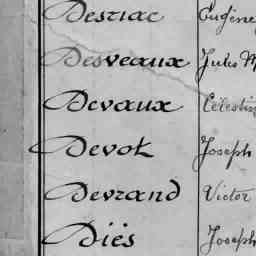 Desriac Eugène
Desveaux Jules M
Devaux Célestin
Devot Joseph
Devrand Victor
Diës Joseph